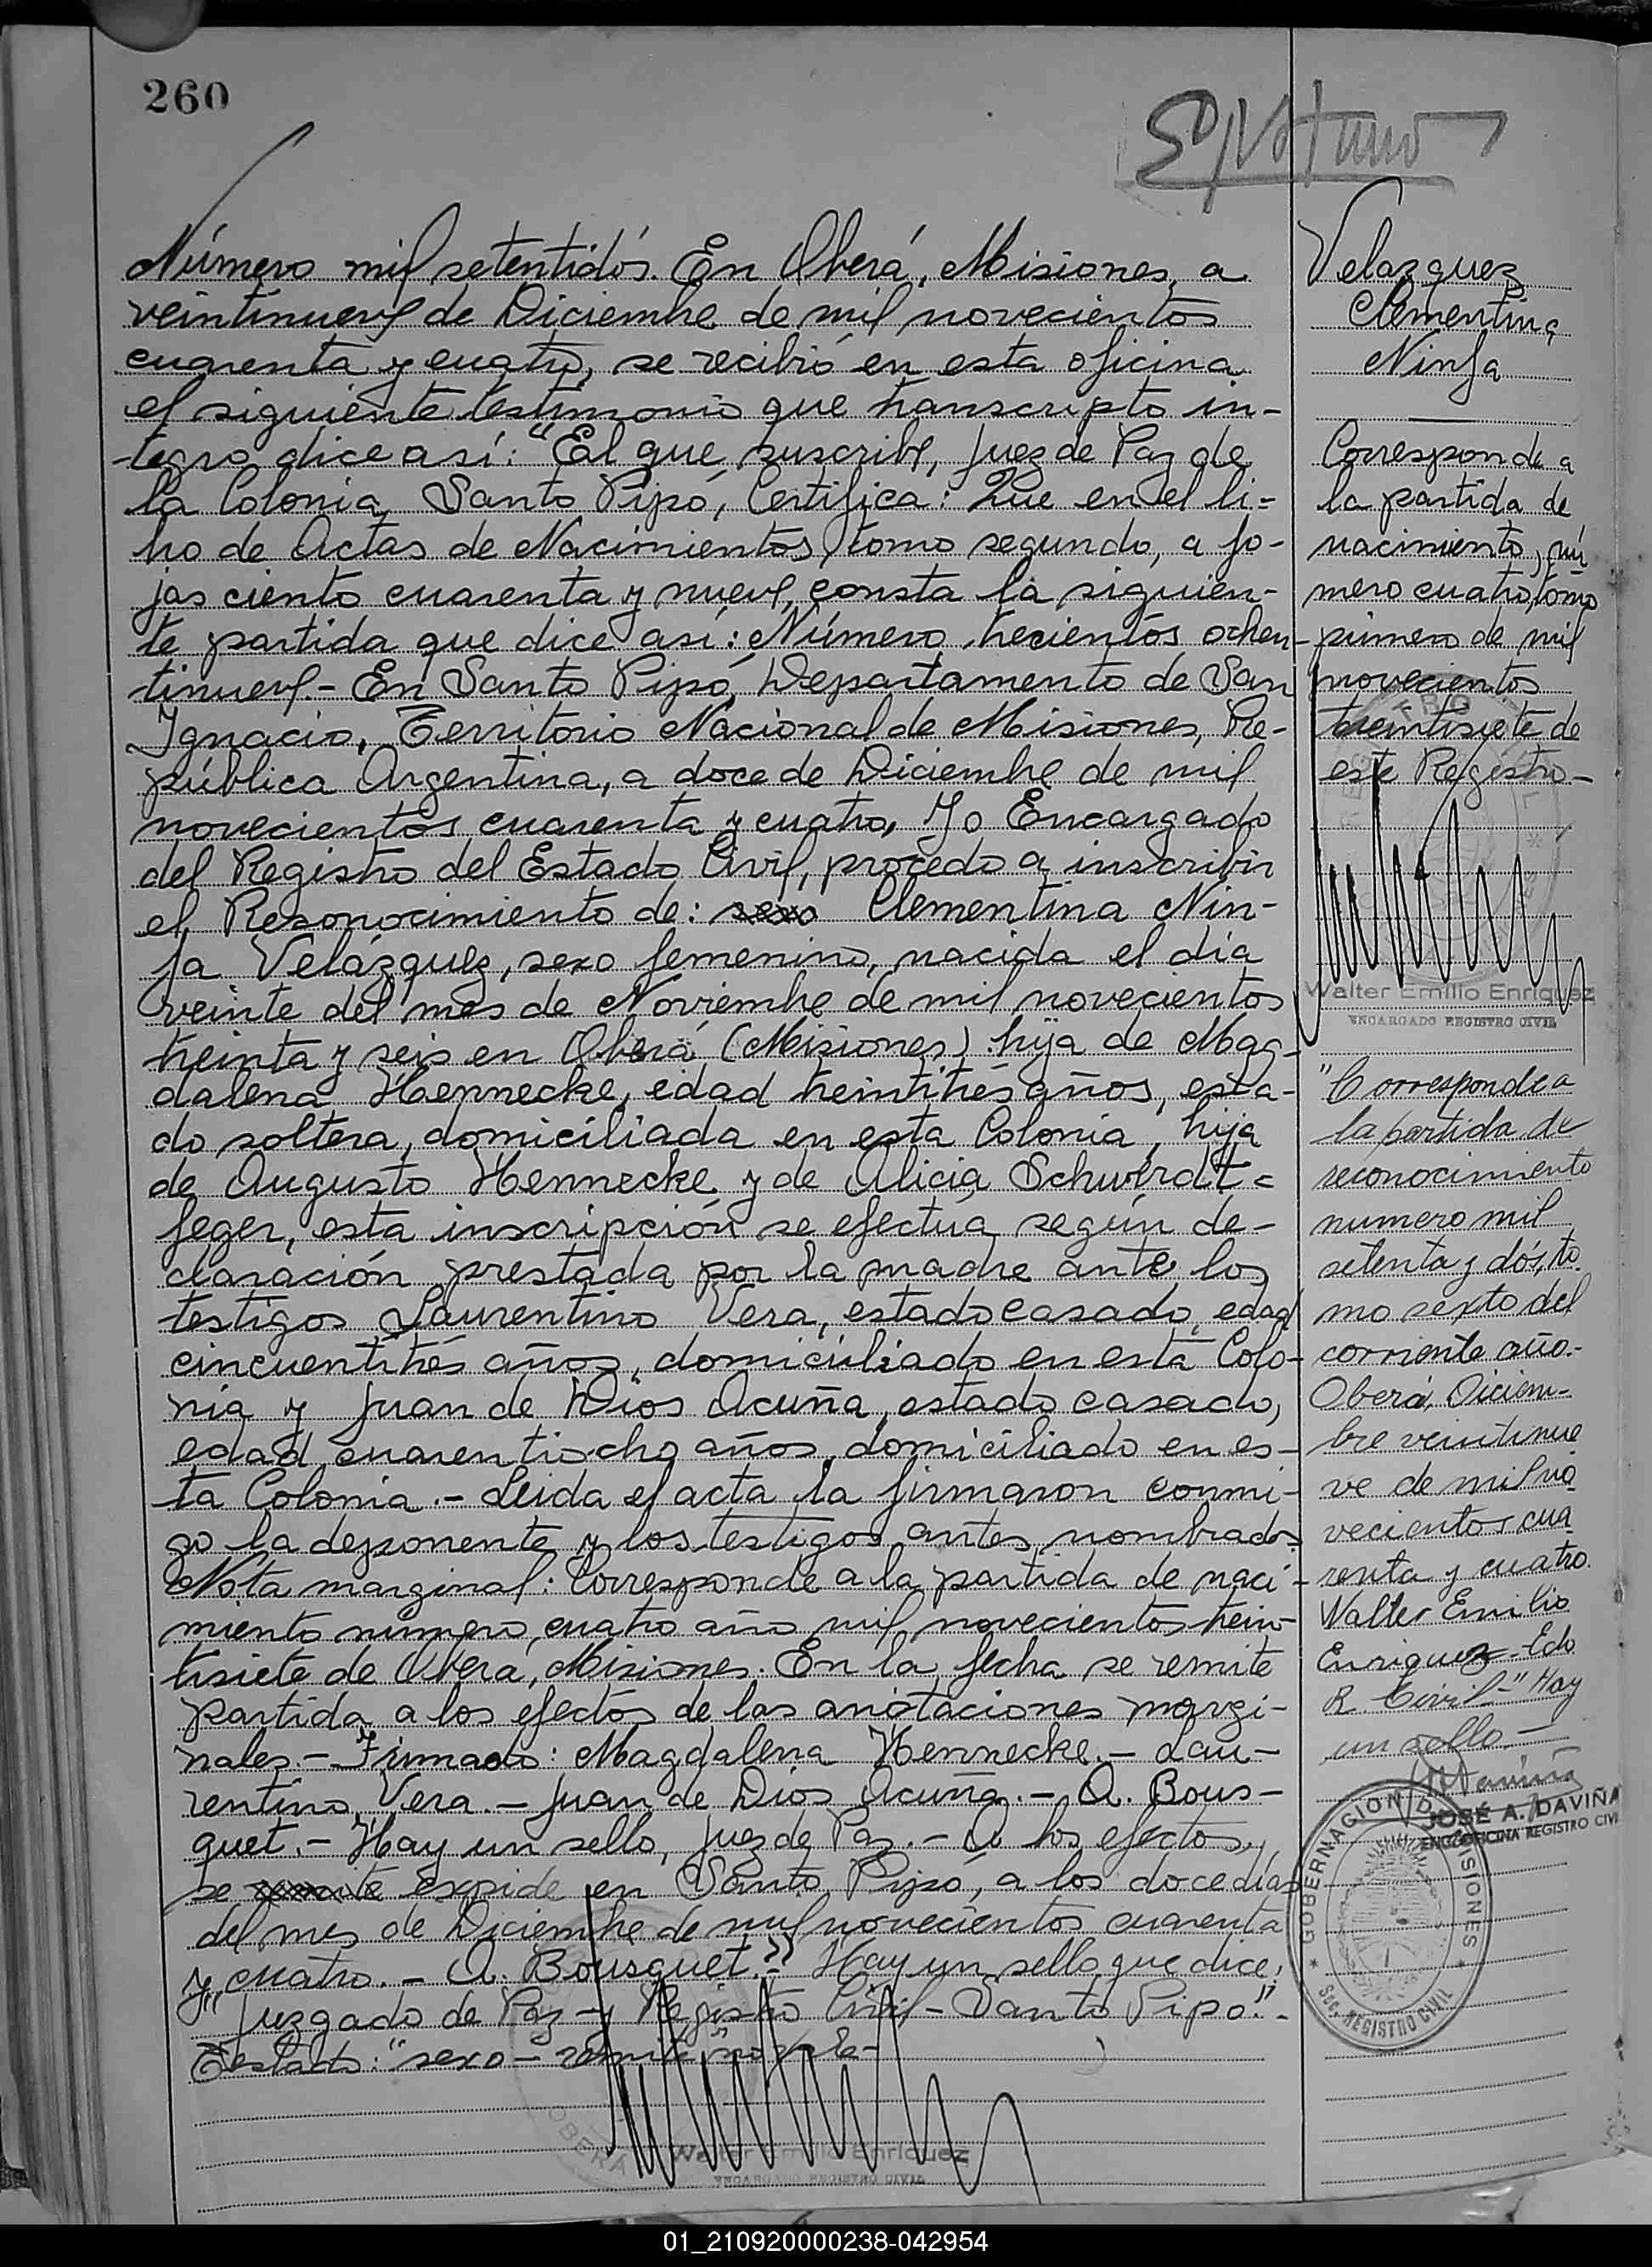 260
Número mil setentidós. En Oberá, Misiones, a
veintinueve de Diciembre de mil novecientos
cuarenta y cuatro, se recibió en esta oficina
el siguiente testimonio que transcripto in-
-tegro dice así: "El que suscribe, Juez de Paz de
la Colonia Santo Pipó, Certifica: Que en el li-
bro de Actas de Nacimientos, tomo segundo, a fo-
jas ciento cuarenta y nueve, consta la siguien-
te partida que dice así: Número trecientos ochen-
tinueve.- En Santo Pipó, Departamento de San
Ignacio, Territorio Nacional de Misiones, Re-
pública Argentina, a doce de Diciembre de mil
novecientos cuarenta y cuatro, Yo Encargado
del Registro del Estado Civil, procedo a inscribir
el Resonocimiento de: sexo Clementina Nin-
fa Velázquez, sexo femenino, nacida el día
veinte del mes de Noviembre de mil novecientos
treinta y seis en Oberá (Misiones) hija de Mag-
dalena Hennecke, edad treintitrés años, esta-
do soltera, domiciliada en esta Colonia, hija
de Augusto Hennecke y de Alicia Schwerdt=
feger, esta inscripción se efectúa según de-
claración prestada por la madre ante los
testigos Laurentino Vera, estado casado, edad
cincuentitrés años, domiciliado en esta Colo-
nia y Juan de Dios Acuña, estado casado,
edad cuarentiocho años, domiciliado en es-
ta Colonia.- Leida el acta la firmaron conmi-
go la deponente y los testigos antes nombrados.
Nota marginal: Corresponde a la partida de naci-
miento número cuatro año mil novecientos trein-
tisiete de Oberá, Misiones. En la fecha se remite
partida a los efectos de las anotaciones margi-
nales.- Firmado: Magdalena Hennecke.- Lau-
rentino Vera.- Juan de Dios Acuña.- A. Bous-
quet.- Hay un sello, Juez de Paz.- A los efectos,
se remite expide en Santo Pipó, a los doce días
del mes de Diciembre de mil novecientos cuarenta
y cuatro.- A. Bousquet." Hay un sello que dice,
"Juzgado de Paz y Registro Civil - Santo Pipó".-
Testado: "sexo - remite" no vale-
OBERA
Walter Emilio Enriquez
ENCARGADO REGISTRO CIVIL
Velazquez
Clementina
Ninfa
Corresponde a
la partida de
nacimiento, nú
mero cuatro, tomo
primero de mil
novecientos
treintisiete de
este Registro-
Walter Emilio Enriquez
ENCARGADO REGISTRO CIVIL
"Corresponde a
la partida de
reconocimiento
numero mil
setenta y dós, to
mo sexto del
corriente año.-
Oberá, Diciem-
bre veintinue
ve de mil no
vecientos cua
renta y cuatro.
Walter Emilio
Enriquez - Edo
R. Civil-" Hay
un sello.-
JOSÉ A. DAVIÑA
ENC. OFICINA REGISTRO CIVIL
GOBERNACION DE MISIONES
Sec. REGISTRO CIVIL
01_210920000238-042954